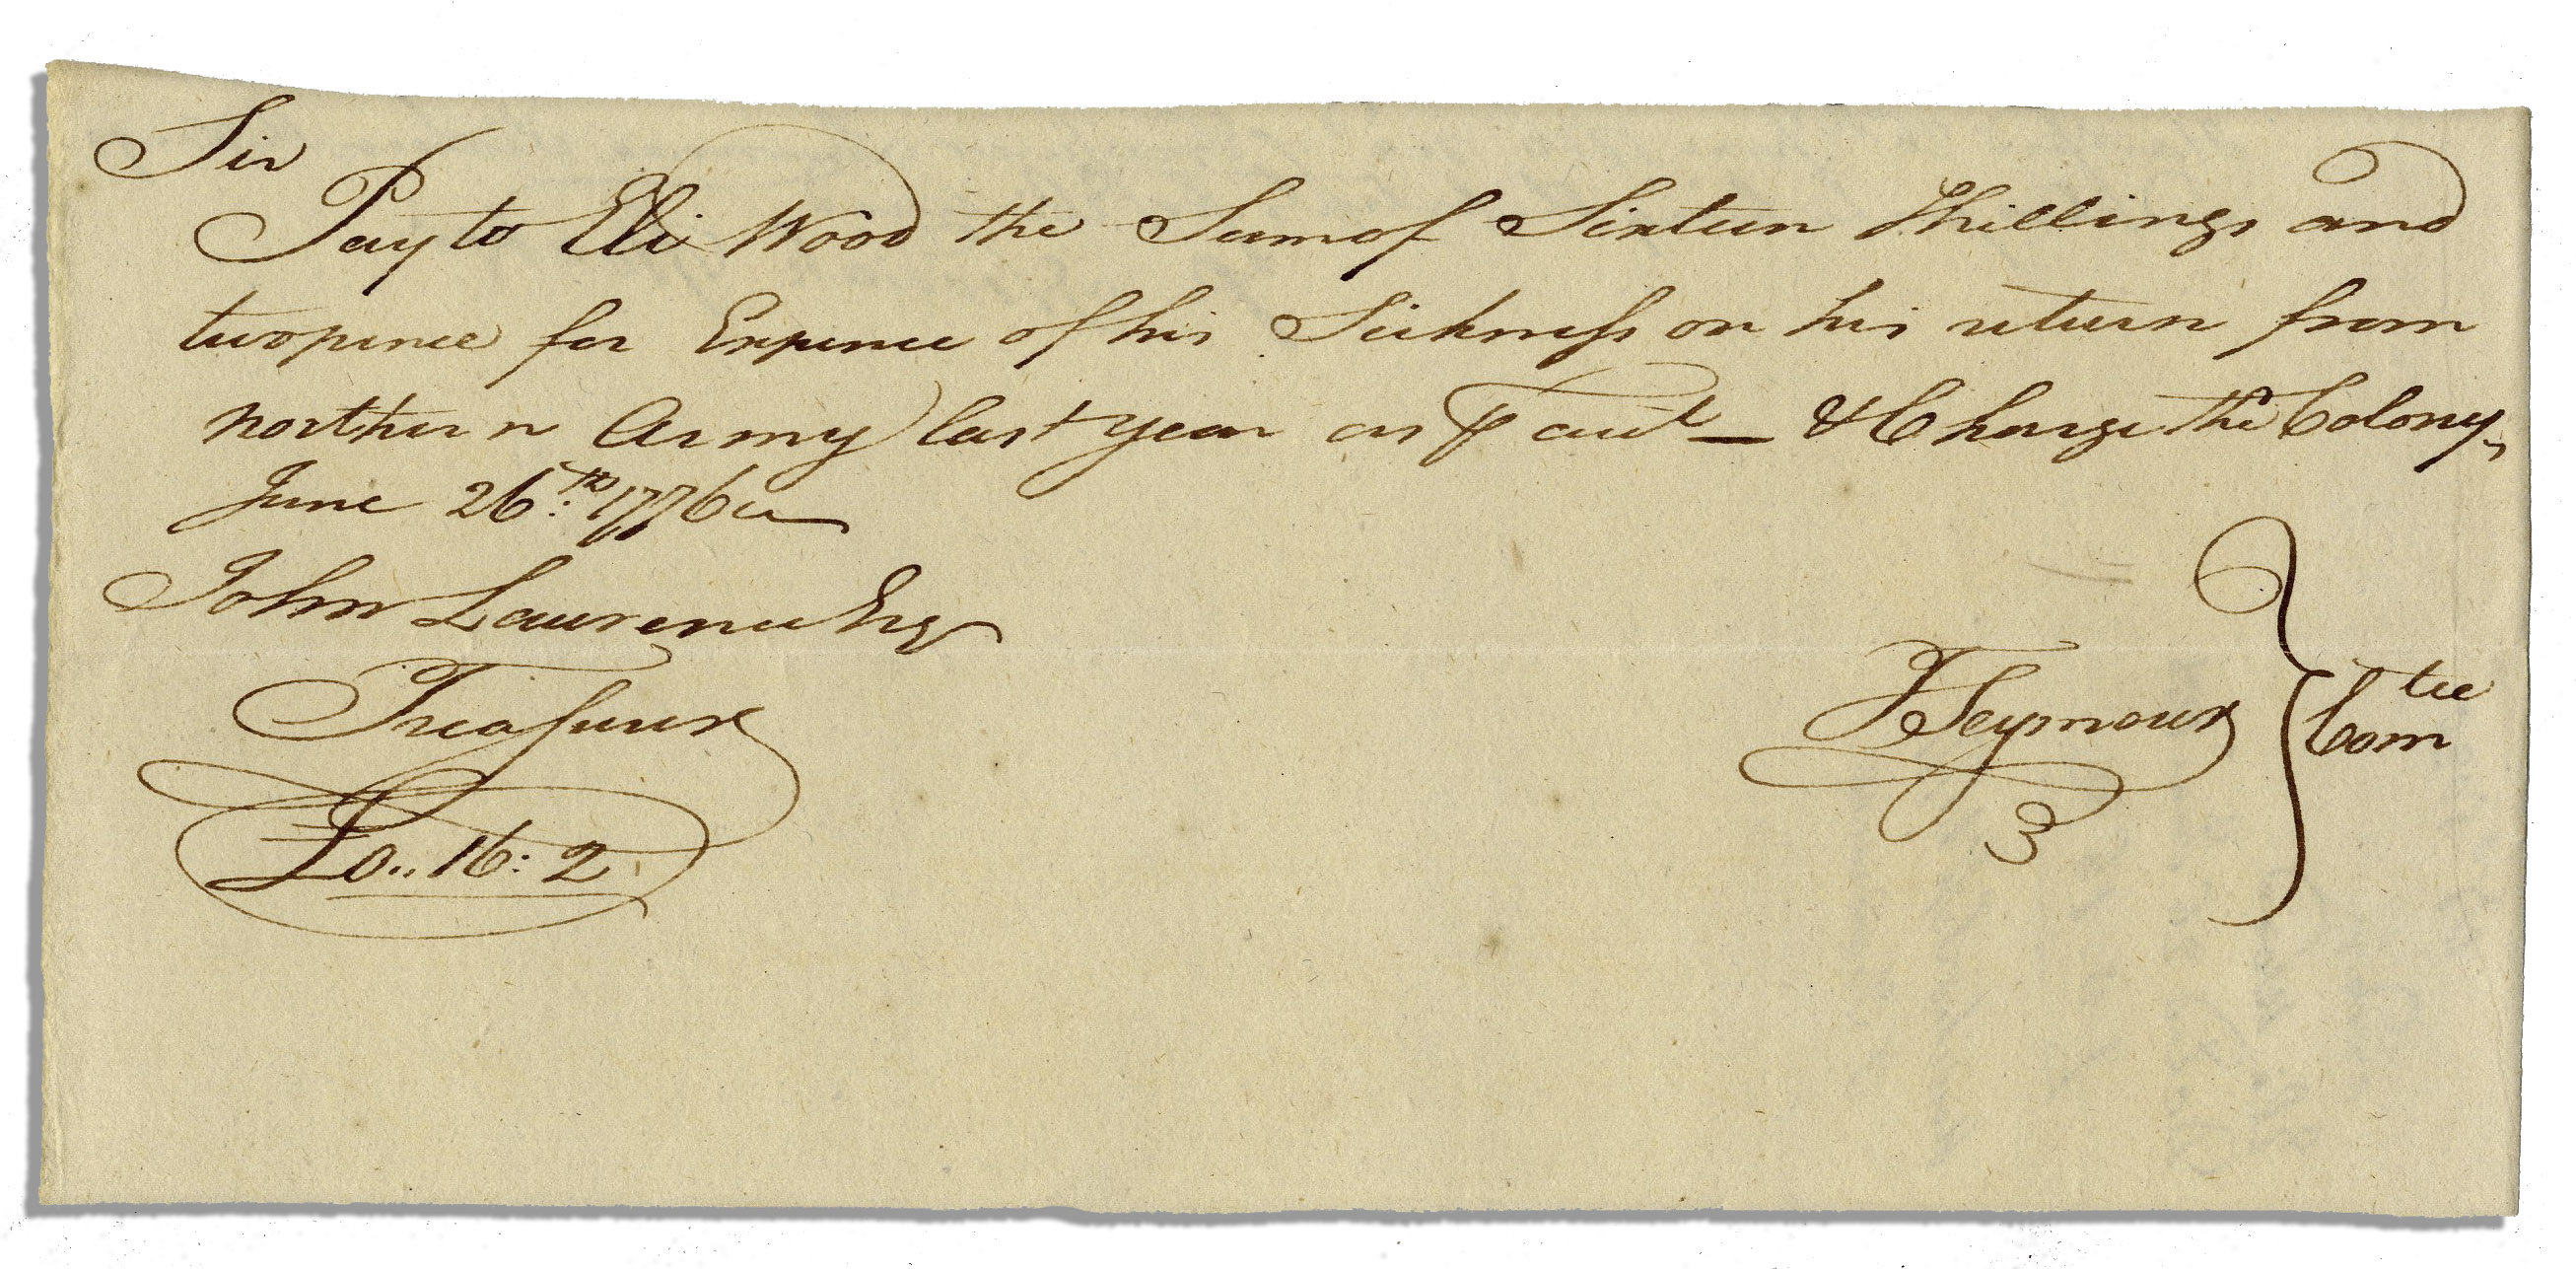 Sir
Pay to Eli Wood the Sum of Sixteen Shillings and
twopence for Expence of his Sickness on his return from
northern Army last year as ⅌ acct — & Charge the Colony,
June 26th: 1776
John Lawrence Esqr
Treasurer
£0,, 16: 2
T Seymour } Comtee